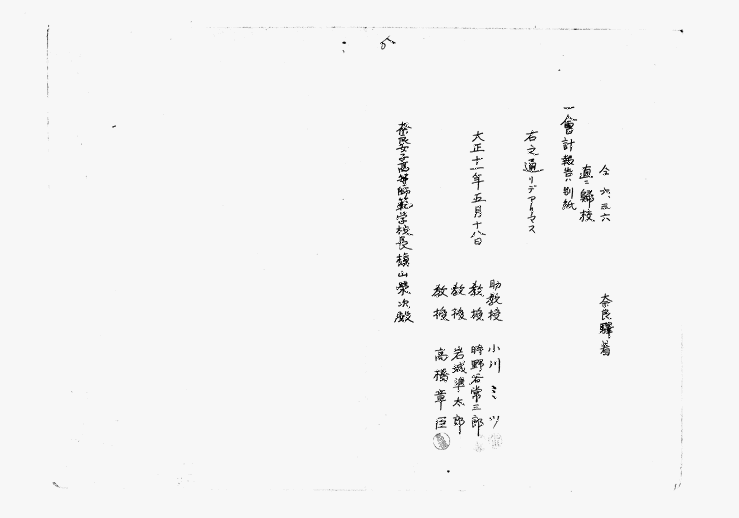 仝 六、五六 奈良驛着
直ニ歸校
一會計報告ハ別紙
右之通リデアリマス
大正十一年五月十八日
助教授 小川ミツ
教授 時野谷常三郎
教授 岩城準太郎
教授 高橋章臣
奈良女子高等師範学校長槇山榮次殿